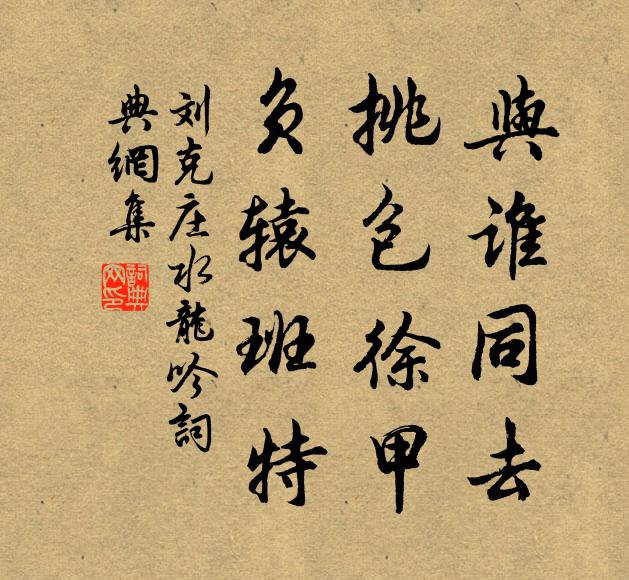 與誰同去
挑包徐甲
负辕班特
刘克庄水龍吟詞
典網集
詞典網印